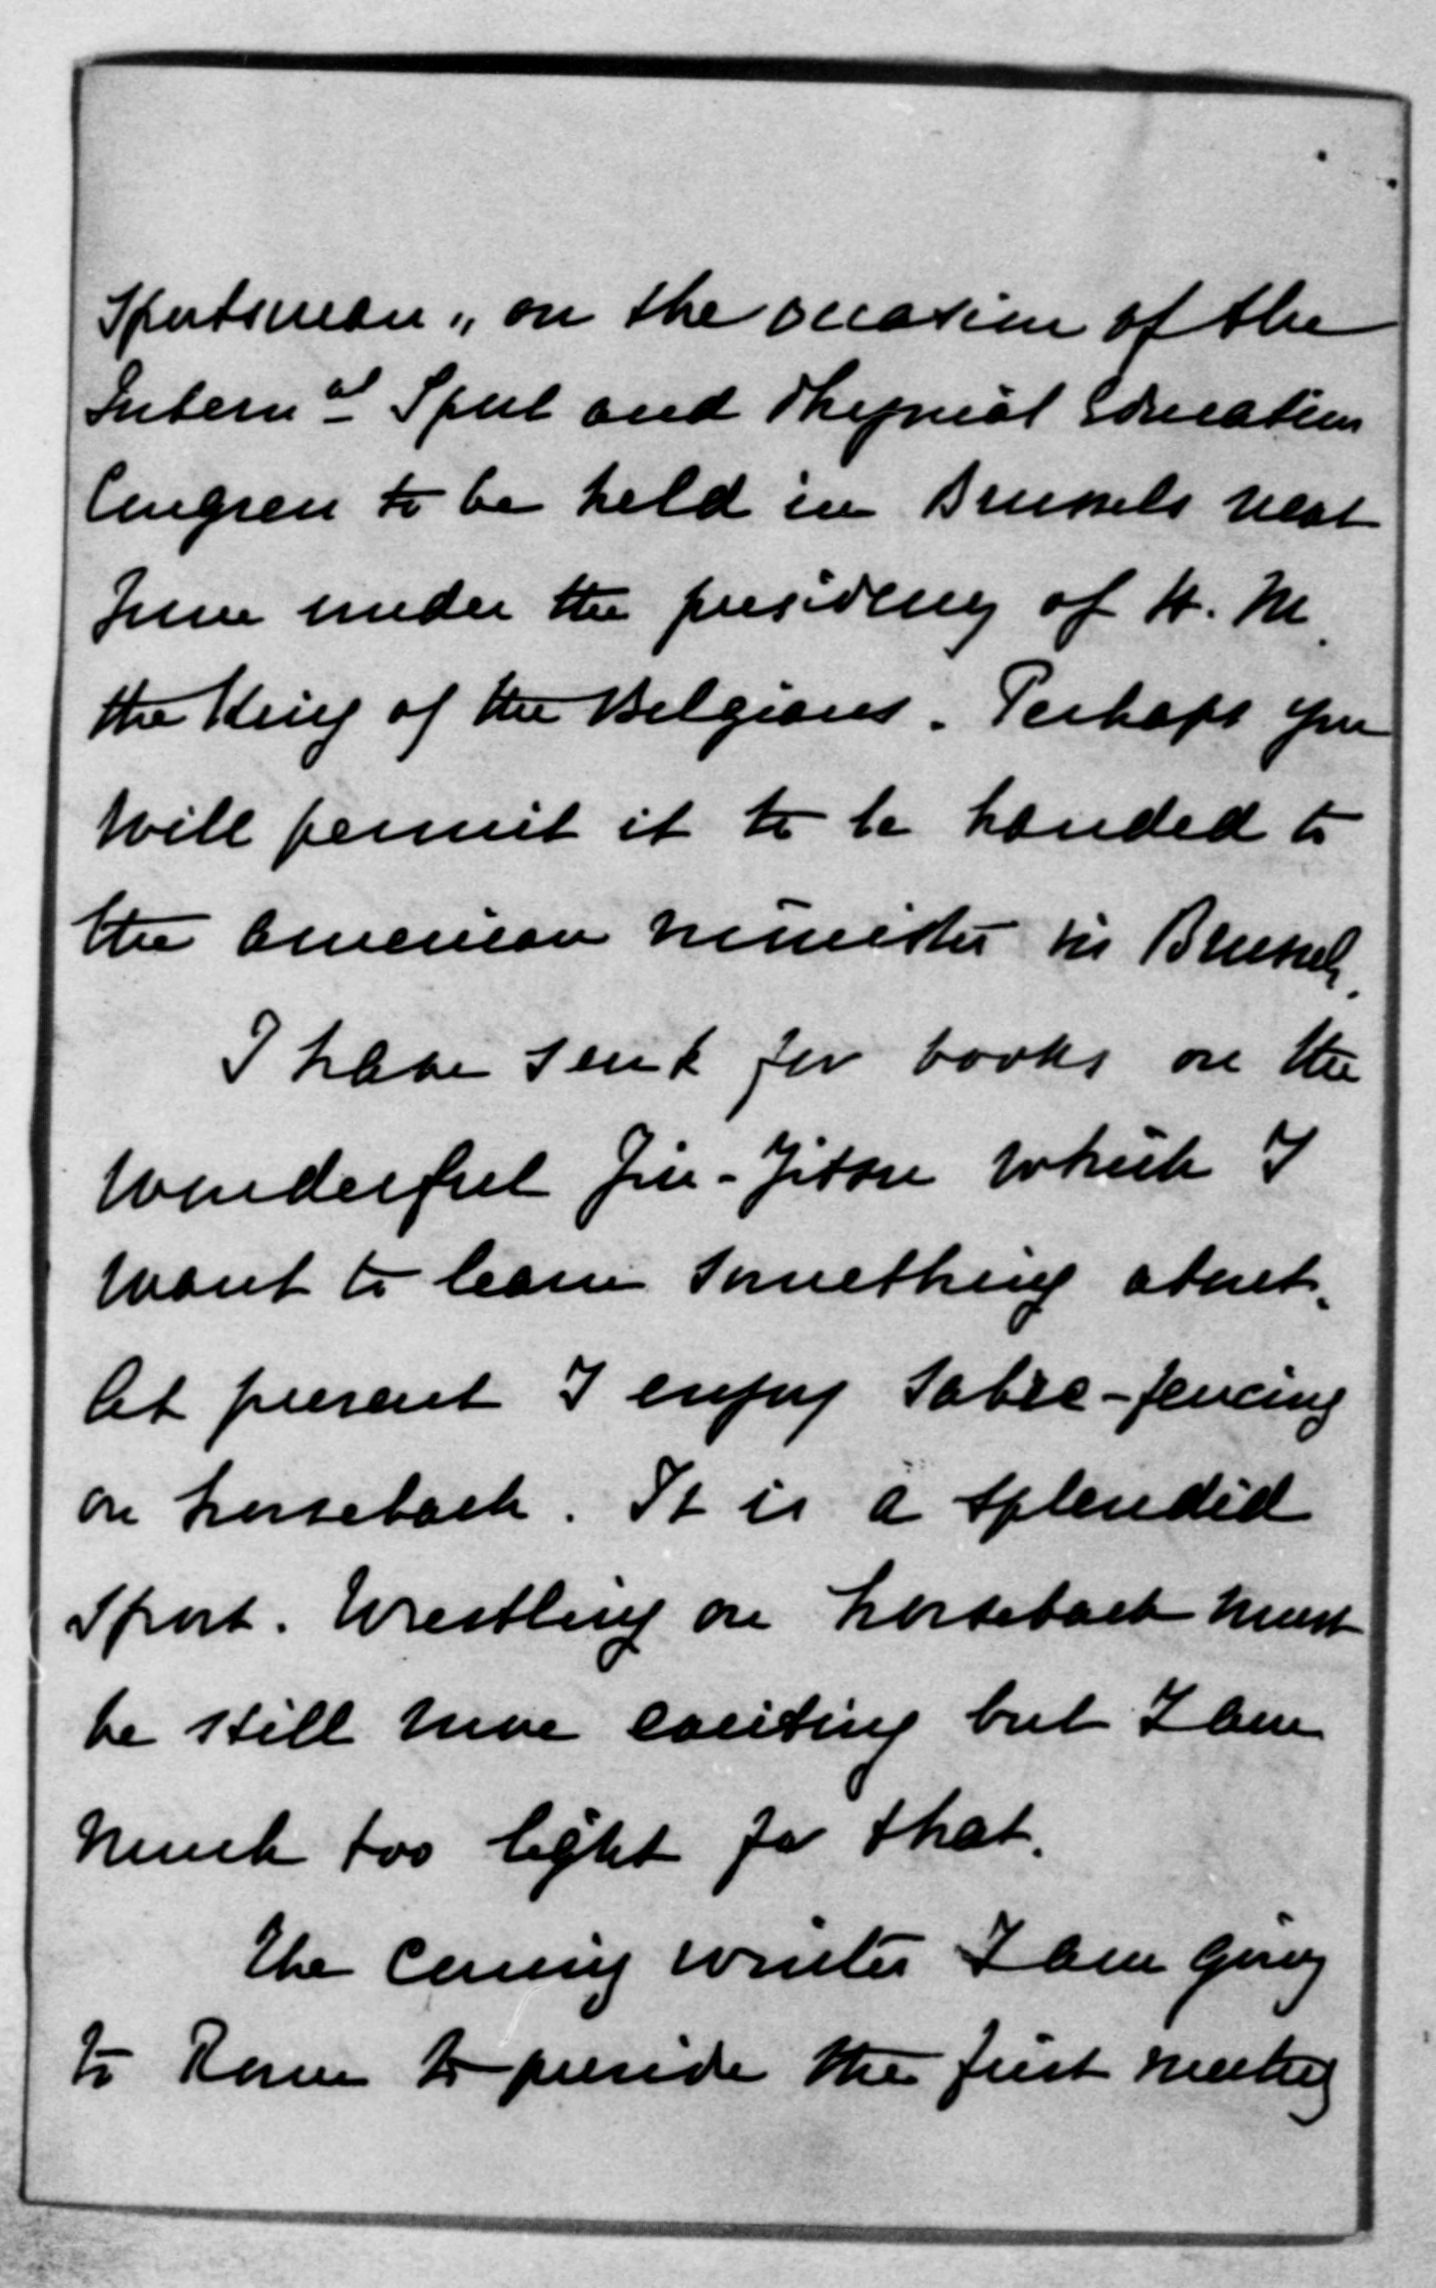 Sportsman„ on the occasion of the
Intern al Sport and Physical Education
Congress to be held in Brussels next
June under the presidency of H. M.
the King of the Belgians. Perhaps you
will permit it to be handed to
the American minister in Brussels.
I have sent for books on the
wonderful Jiu-Jitsu which I
want to learn something about.
At present I enjoy sabre-fencing
on horseback. It is a splendid
sport. Wrestling on horseback must
be still more exciting but I am
much too light for that.
The coming winter I am going
to Rome to preside the first meeting